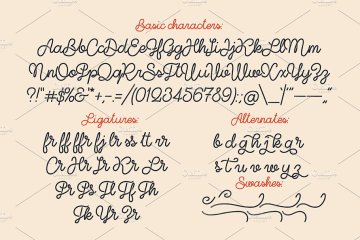 Basic characters:
AaBbCcDdEeFfGgHhIiJjKkLlMm
NnOoPpQqRrSsTtUuVvWwXxYyZz
?!"#$%&'*+,-.=/(0123456789):;@\_|'"——,"
Ligatures:
fr ff ffr fj lr ss tt rr
Cr Hr Ir Kr Lr
Pr Ps Tl Ff Th
Tk Yr Zr
Alternates:
b d g h j k q r
s t u v w y z
Swashes: